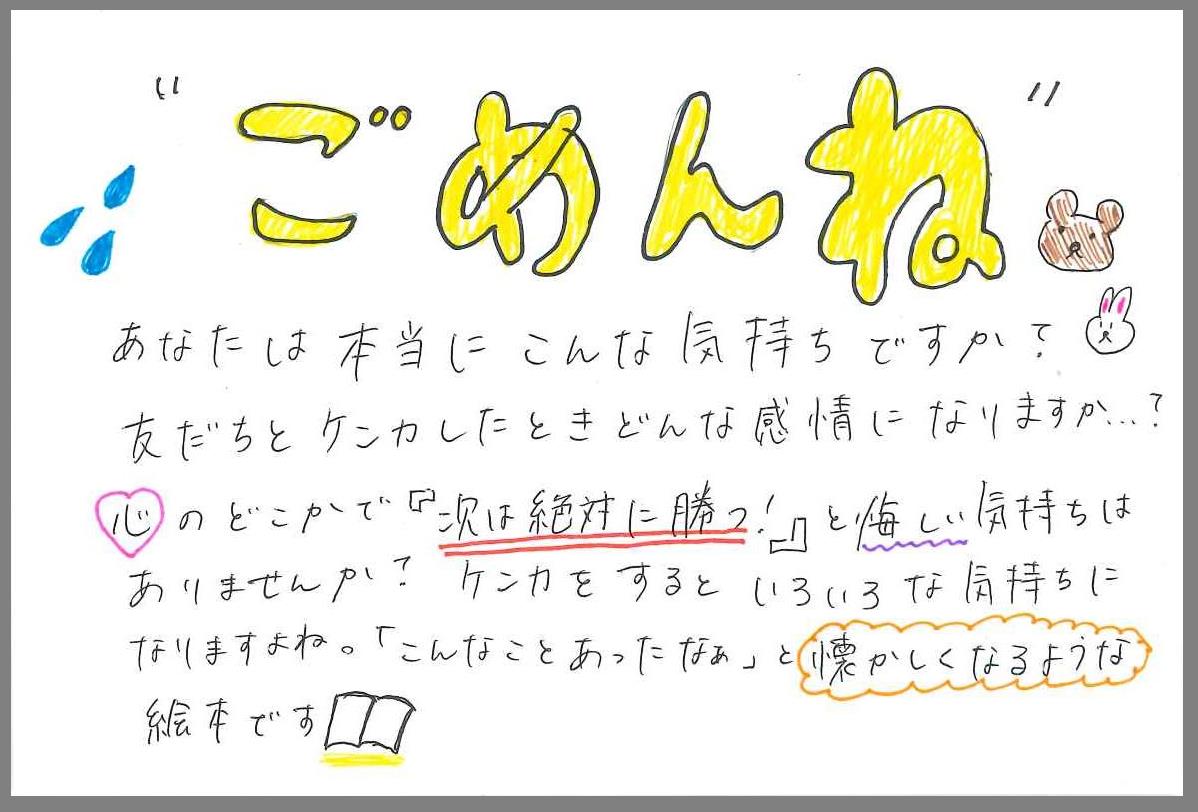 "ごめんね"
あなたは本当にこんな気持ちですか?
友だちとケンカしたときどんな感情になりますか…?
心のどこかで『次は絶対に勝つ!』と悔しい気持ちは
ありませんか? ケンカをするといろいろな気持ちに
なりますよね。「こんなことあったなぁ」と懐かしくなるような
絵本です